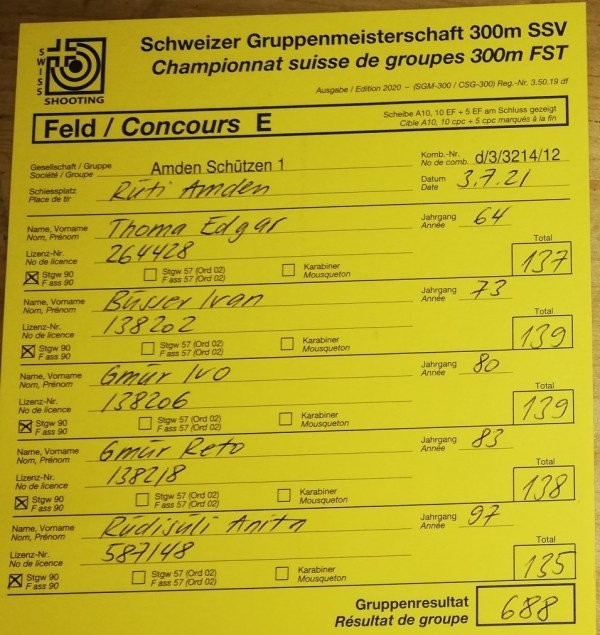 SWISS
SHOOTING
Schweizer Gruppenmeisterschaft 300m SSV
Championnat suisse de groupes 300m FST
Ausgabe / Edition 2020 – (SGM-300 / CSG-300) Reg.-Nr. 3.50.19 df
Feld / Concours E
Scheibe A10, 10 EF + 5 EF am Schluss gezeigt
Cible A10, 10 cpc + 5 cpc marqués à la fin
Gesellschaft / Gruppe
Société / Groupe
Amden Schützen 1
Komb.-Nr.
No de comb.
d/3/3214/12
Schiessplatz
Place de tir
Rüti Amden
Datum
Date
3.7.21
Name, Vorname
Nom, Prénom
Thoma Edgar
Jahrgang
Année
64
Lizenz-Nr.
No de licence
264428
Total
137
Stgw 90
F ass 90
Stgw 57 (Ord 02)
F ass 57 (Ord 02)
Karabiner
Mousqueton
Name, Vorname
Nom, Prénom
Büsser Ivan
Jahrgang
Année
73
Lizenz-Nr.
No de licence
138202
Total
139
Stgw 90
F ass 90
Stgw 57 (Ord 02)
F ass 57 (Ord 02)
Karabiner
Mousqueton
Name, Vorname
Nom, Prénom
Gmür Ivo
Jahrgang
Année
80
Lizenz-Nr.
No de licence
138206
Total
139
Stgw 90
F ass 90
Stgw 57 (Ord 02)
F ass 57 (Ord 02)
Karabiner
Mousqueton
Name, Vorname
Nom, Prénom
Gmür Reto
Jahrgang
Année
83
Lizenz-Nr.
No de licence
138218
Total
138
Stgw 90
F ass 90
Stgw 57 (Ord 02)
F ass 57 (Ord 02)
Karabiner
Mousqueton
Name, Vorname
Nom, Prénom
Rüdisüli Anita
Jahrgang
Année
97
Lizenz-Nr.
No de licence
587148
Total
135
Stgw 90
F ass 90
Stgw 57 (Ord 02)
F ass 57 (Ord 02)
Karabiner
Mousqueton
Gruppenresultat
Résultat de groupe
688